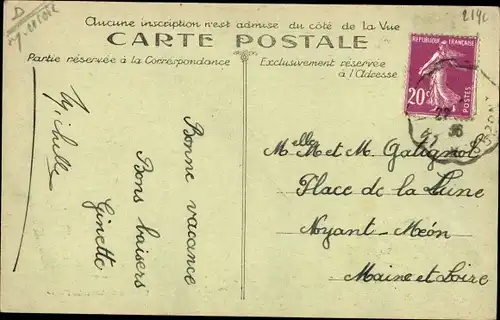 D
2190
Aucune inscription n'est admise du côté de la Vue
CARTE POSTALE
Partie réservée à la Correspondance
Exclusivement réservée
à l'Adresse
REPUBLIQUE FRANÇAISE
20c
POSTES
Bonne vacance
Bons baisers
Ginette
Michelle
Melle M et M. Galignol
Place de la Lune
Noyant-Méon
Maine et Loire